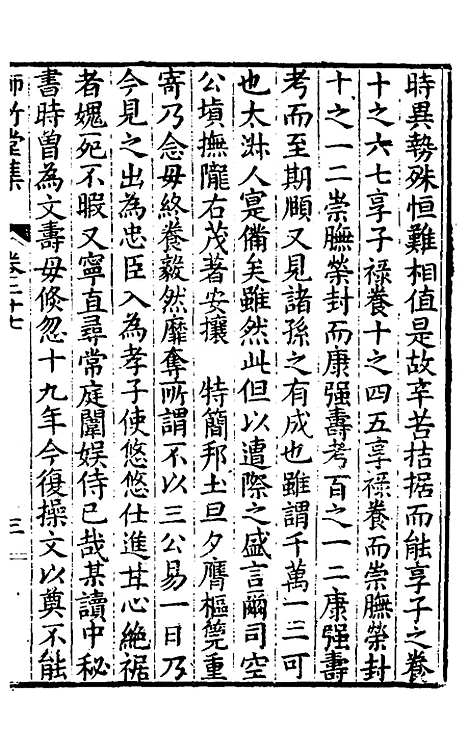 時異勢殊恒難相值是故辛苦拮据而能享子之養
十之六七享子祿養十之四五享祿養而崇膴榮封
十之一二崇膴榮封而康强壽考百之一二康强壽
考而至期頤又見諸孫之有成也雖謂千萬一二可
也太淋人寔備矣雖然此但以遭際之盛言爾司空
公填撫隴右茂著安攘　特簡邦土旦夕膺樞筦重
寄乃念母終養毅然靡奪所謂不以三公易一日乃
今見之出為忠臣入為孝子使悠悠仕進甘心絶裾
者媿死不暇又寧直尋常庭闈娛侍已哉某讀中秘
書時曽為文壽母倏忽十九年今復操文以奠不能
師竹堂集
卷二十七
三